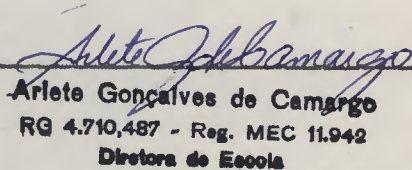 Arlete G de Camargo
Arlete Gonçalves de Camargo
RG 4.710,487 - Reg. MEC 11.942
Diretora de Escola